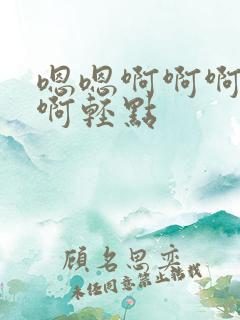 嗯嗯啊啊啊
啊轻點
顧名思奕
未经同意禁止转载